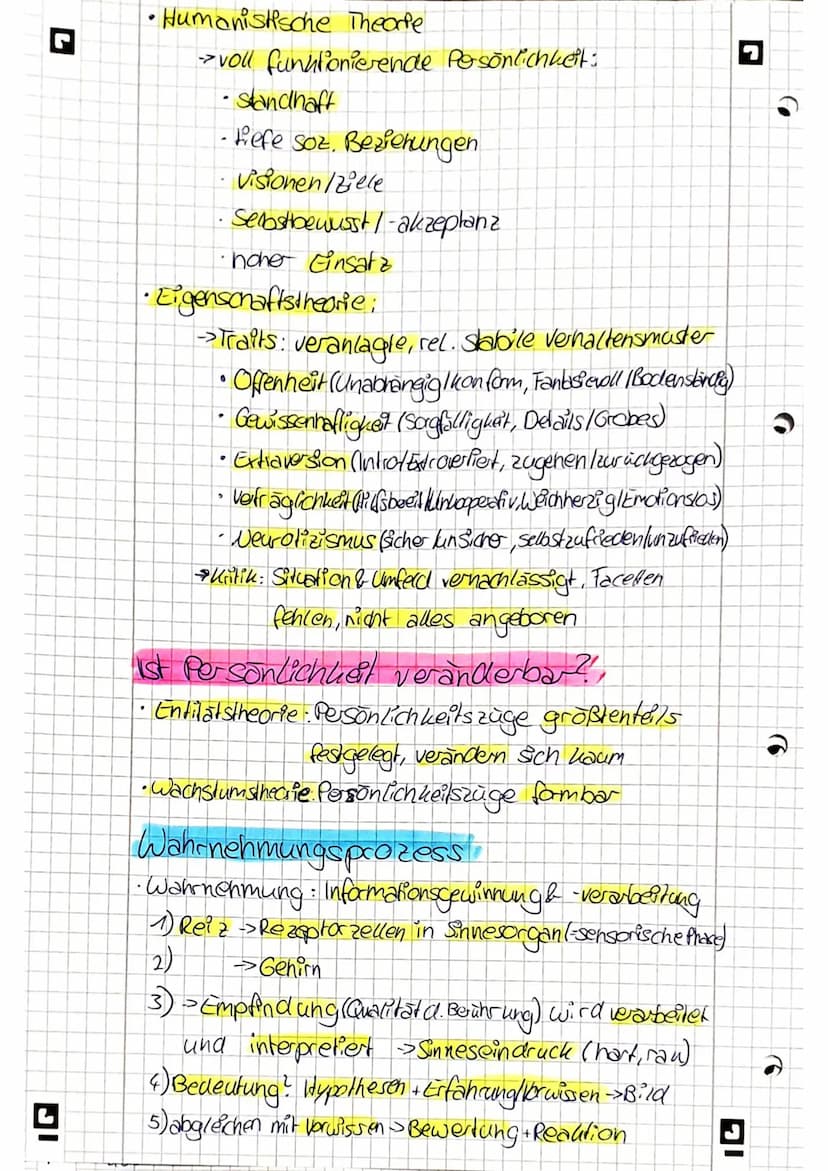 • Humanistische Theorie
→ voll funktionierende Persönlichkeit:
• standhaft
• tiefe soz. Beziehungen
• Visionen/Ziele
• Selbstbewusst/-akzeptanz
• hoher Einsatz
• Eigenschaftstheorie:
→ Traits: veranlagte, rel. stabile Verhaltensmuster
• Offenheit (Unabhängig/konform, Fantasievoll/Bodenständig)
• Gewissenhaftigkeit (Sorgfälligkeit, Details/Grobes)
• Extraversion (Intro/Extrovertiert, zugehen/zurückgezogen)
• Verträglichkeit (Hilfsbereit/Unkooperativ, Weichherzig/Emotionslos)
• Neurotizismus (sicher/unsicher, selbstzufrieden/unzufrieden)
→ Kritik: Situation & Umfeld vernachlässigt, Facetten
fehlen, nicht alles angeboren
Ist Persönlichkeit veränderbar?
• Entitätstheorie: Persönlichkeitszüge größtenteils
festgelegt, verändern sich kaum
• Wachstumstheorie: Persönlichkeitszüge formbar
Wahrnehmungsprozess
• Wahrnehmung: Informationsgewinnung & -verarbeitung
1) Reiz → Rezeptorzellen in Sinnesorgan (=sensorische Phase)
2) → Gehirn
3) → Empfindung (Qualität d. Berührung) wird verarbeitet
und interpretiert → Sinneseindruck (hart, rau)
4) Bedeutung? Hypothesen + Erfahrung/Vorwissen → Bild
5) abgleichen mit Vorwissen → Bewertung + Reaktion